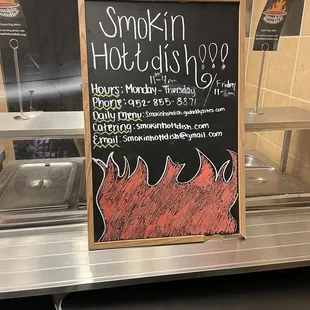 Smokin
Hottdish!!!
11-4pm
Hours: Monday - Thursday
Friday
Phone: 952-855-8871
Daily Menu: smokinhottdish.godaddysites.com
Catering: smokinhottdish.com
Email: Smokinhottdish@gmail.com